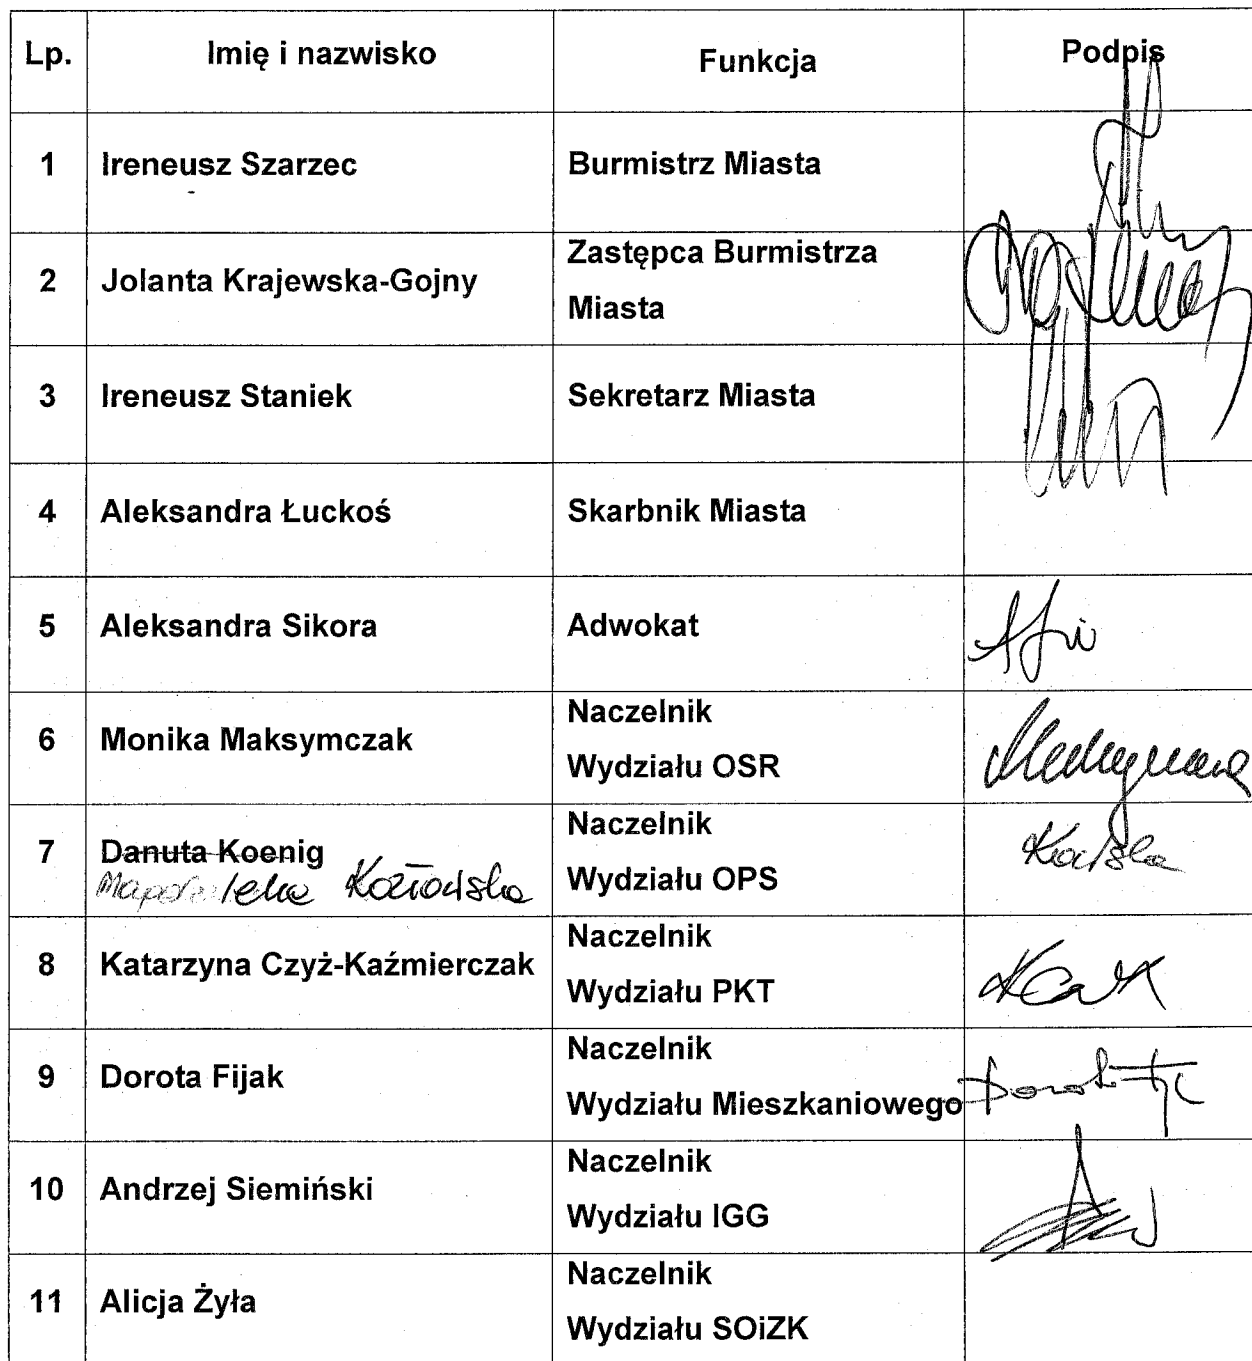 Lp. Imię i nazwisko Funkcja Podpis
1 Ireneusz Szarzec Burmistrz Miasta
2 Jolanta Krajewska-Gojny Zastępca Burmistrza
Miasta
3 Ireneusz Staniek Sekretarz Miasta
4 Aleksandra Łuckoś Skarbnik Miasta
5 Aleksandra Sikora Adwokat
6 Monika Maksymczak Naczelnik
Wydziału OSR
7 Danuta Koenig Naczelnik
Kozłowska Wydziału OPS
8 Katarzyna Czyż-Kaźmierczak Naczelnik
Wydziału PKT
9 Dorota Fijak Naczelnik
Wydziału Mieszkaniowego
10 Andrzej Siemiński Naczelnik
Wydziału IGG
11 Alicja Żyła Naczelnik
Wydziału SOiZK